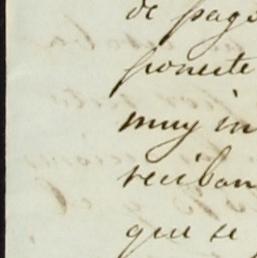 de pago
ponerte
muy in
reciban
que se